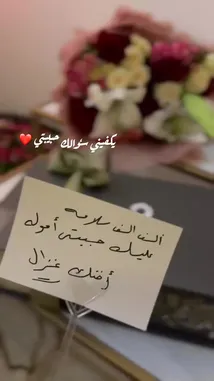 يكفيني سؤالك حبيبتي ❤️
الف الف سلامه
عليك حبيبتي أمونه
أختك غزال